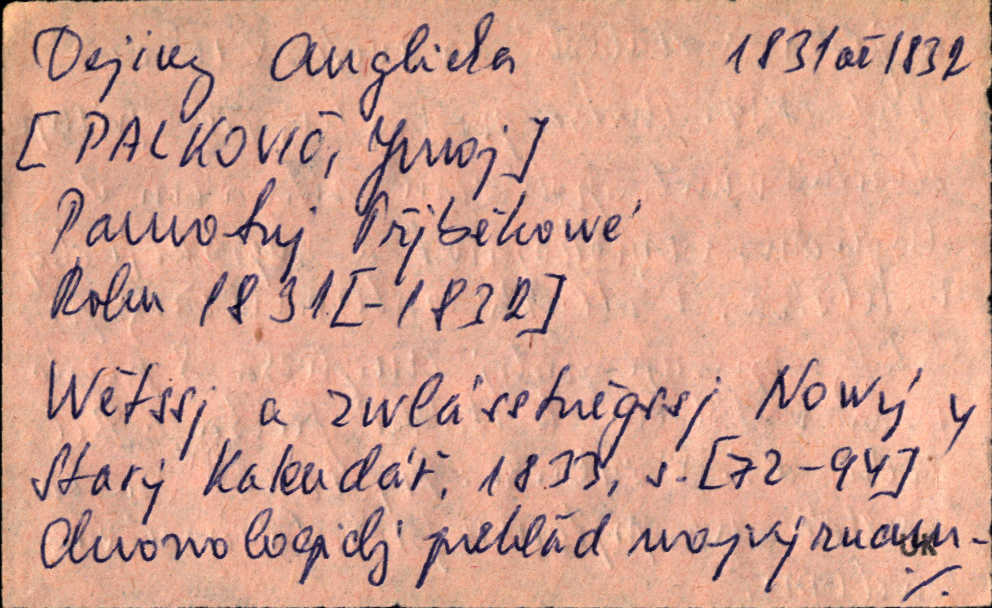 Dejiny Anglicka 1831 až 1832
[PALKOVIČ, Juraj]
Pamotnj Přjběhowé
Roku 1831[-1832]
Wětssj a zwlássetněgssj Nowý y
Starý Kalendář, 1833, s.[72-94]
Chronologický prehľad najvýznam-
UK ./.